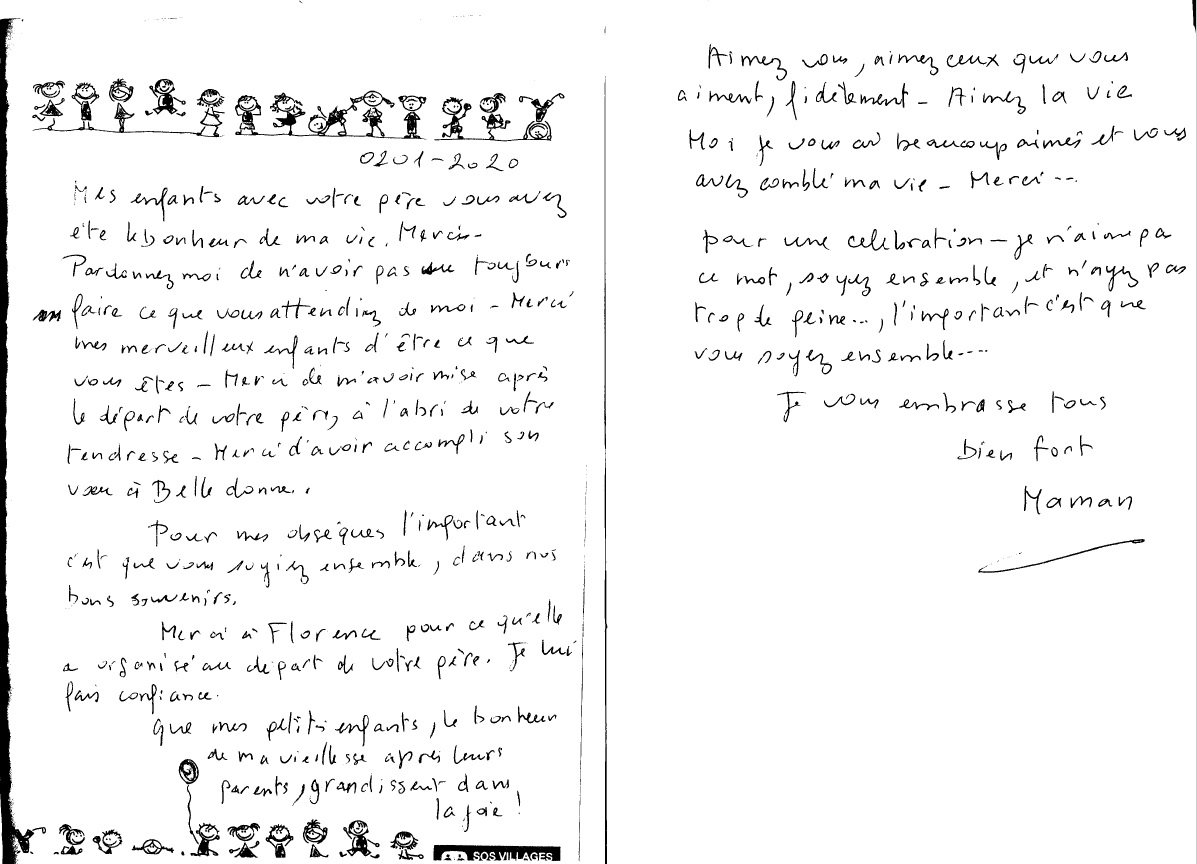 0201-2020
Mes enfants avec votre père vous avez
été le bonheur de ma vie. Merci -
Pardonnez moi de n'avoir pas su toujours
faire ce que vous attendiez de moi - Merci
mes merveilleux enfants d'être ce que
vous êtes - Merci de m'avoir mise après
le départ de votre père, à l'abri de votre
tendresse - Merci d'avoir accompli son
vœu à Belle donne..
Pour mes obsèques l'important
c'est que vous soyiez ensemble, dans nos
bons souvenirs.
Merci à Florence pour ce qu'elle
a organisé au départ de votre père. Je lui
fais confiance.
Que mes petits enfants, le bonheur
de ma vieillesse après leurs
parents, grandissent dans
la joie !
SOS VILLAGES
Aimez vous, aimez ceux qui vous
aiment, fidèlement - Aimez la vie
Moi je vous ai beaucoup aimés et vous
avez comblé ma vie - Merci...
pour une celebration - je n'aime pa
ce mot, soyez ensemble, et n'ayez pas
trop de peine..., l'important c'est que
vous soyez ensemble....
Je vous embrasse tous
bien fort
Maman